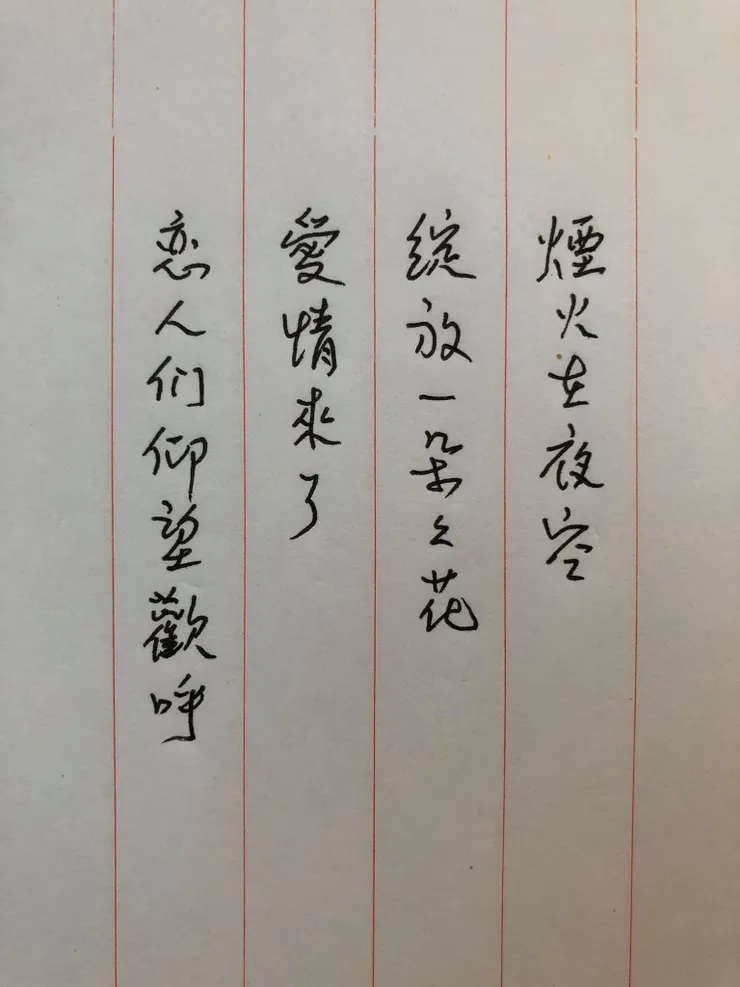 煙火在夜空
綻放一朵々花
愛情來了
恋人们仰望歡呼